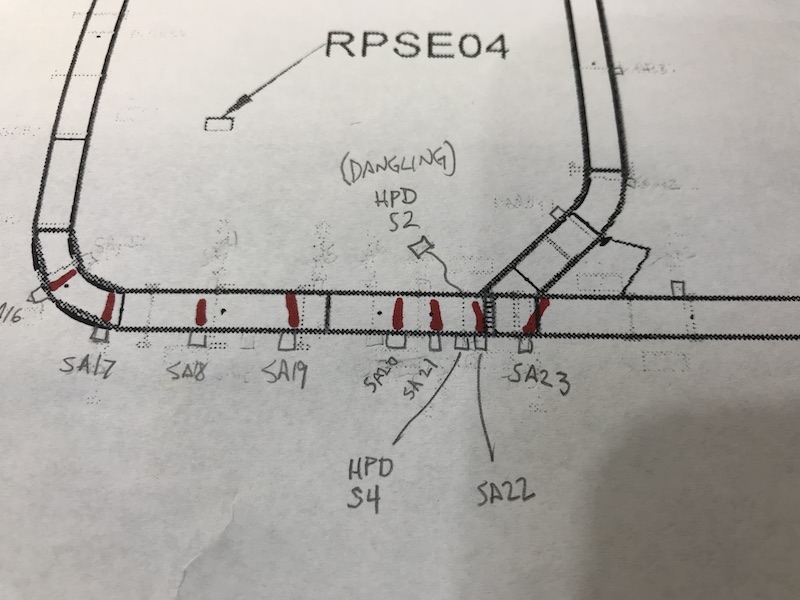 RPSE04
(DANGLING)
HPD
S2
SA17
SA18
SA19
SA20
SA21
SA23
HPD
S4
SA22